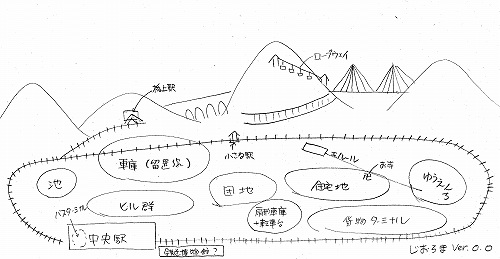 ロープウェイ
極上駅
車庫 (留置線)
小さな駅
モノレール
お寺
池
団地
住宅地
ゆうえんち
バスターミナル
ビル群
扇形車庫
+転車台
貨物ターミナル
中央駅
鉄道博物館?
じおらま Ver.0.0